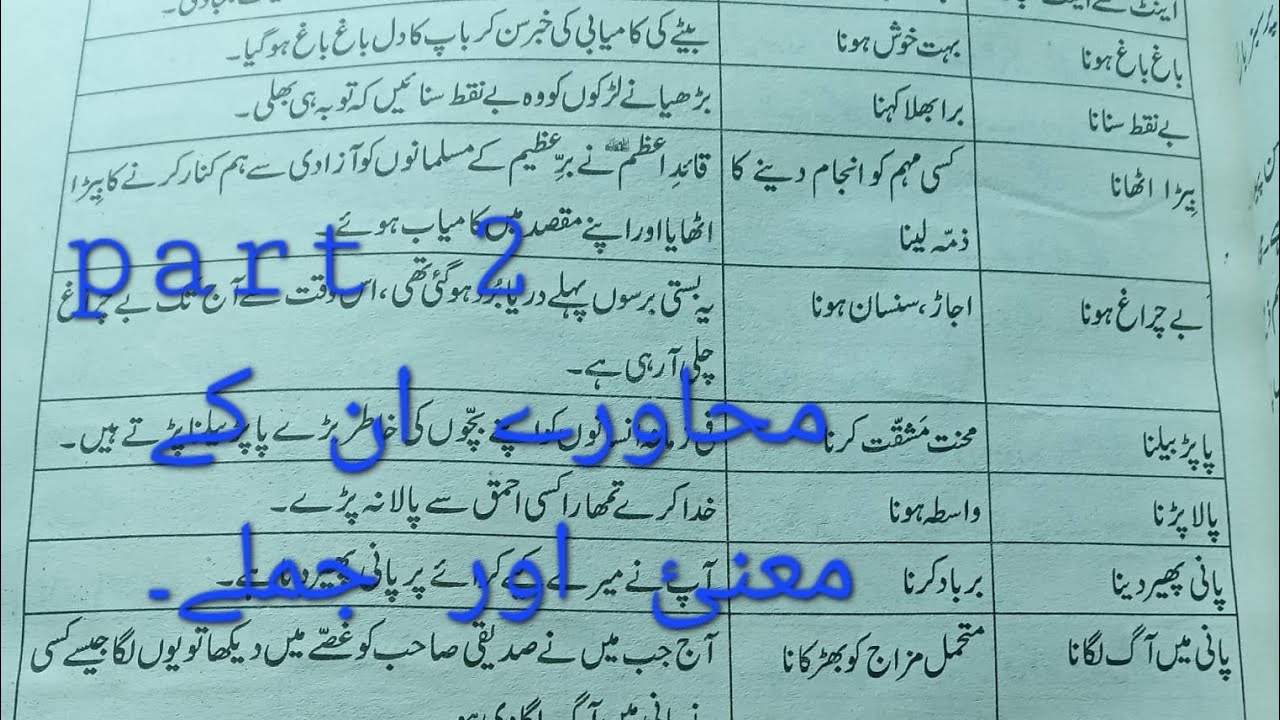 باغ باغ ہونا بہت خوش ہونا بیٹے کی کامیابی کی خبر سن کر باپ کا دل باغ باغ ہو گیا۔
بے نقط سنانا برا بھلا کہنا بڑھیا نے لڑکوں کو وہ بے نقط سنائیں کہ توبہ ہی بھلی۔
بیڑا اٹھانا کسی مہم کو انجام دینے کا قائدِ اعظم نے برِّعظیم کے مسلمانوں کو آزادی سے ہم کنار کرنے کا بیڑا
ذمّہ لینا اٹھایا اور اپنے مقصد میں کامیاب ہوئے۔
part 2
بے چراغ ہونا اجاڑ، سنسان ہونا یہ بستی برسوں پہلے دریا بُرد ہو گئی تھی، اس وقت سے آج تک بے چراغ
چلی آ رہی ہے۔
محاورے ان کے
پاپڑ بیلنا محنت مَشقّت کرنا انسانوں کو اپنے بچّوں کی خاطر بڑے پاپڑ بیلنا پڑتے ہیں۔
پالا پڑنا واسطہ ہونا خدا کرے تمھارا کسی احمق سے پالا نہ پڑے۔
معنیٰ اور جملے۔
پانی پھیر دینا برباد کرنا آپ نے میرے کرائے پر پانی پھیر
پانی میں آگ لگانا متحمل مزاج کو بھڑکانا آج جب میں نے صدیقی صاحب کو غصّے میں دیکھا تو یوں لگا جیسے کسی